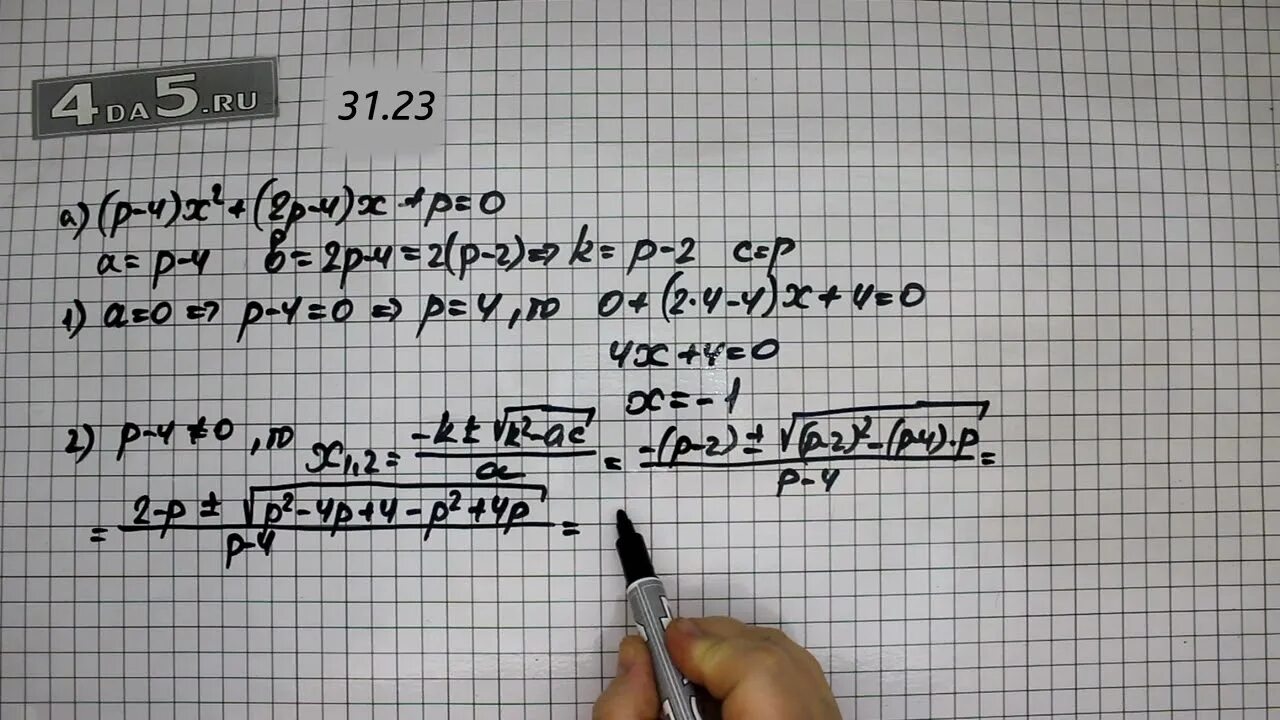 4DA5.RU
31.23
а) (p-4)x²+(2p-4)x+p=0
a=p-4 b=2p-4=2(p-2)⇒k=p-2 c=p
1) a=0⇒p-4=0⇒p=4, то 0+(2·4-4)x+4=0
4x+4=0
x=-1
2) p-4≠0, то x₁,₂=(-k±√(k²-ac))/a=(-(p-2)±√((p-2)²-(p-4)·p))/(p-4)=
=(2-p±√(p²-4p+4-p²+4p))/(p-4)=